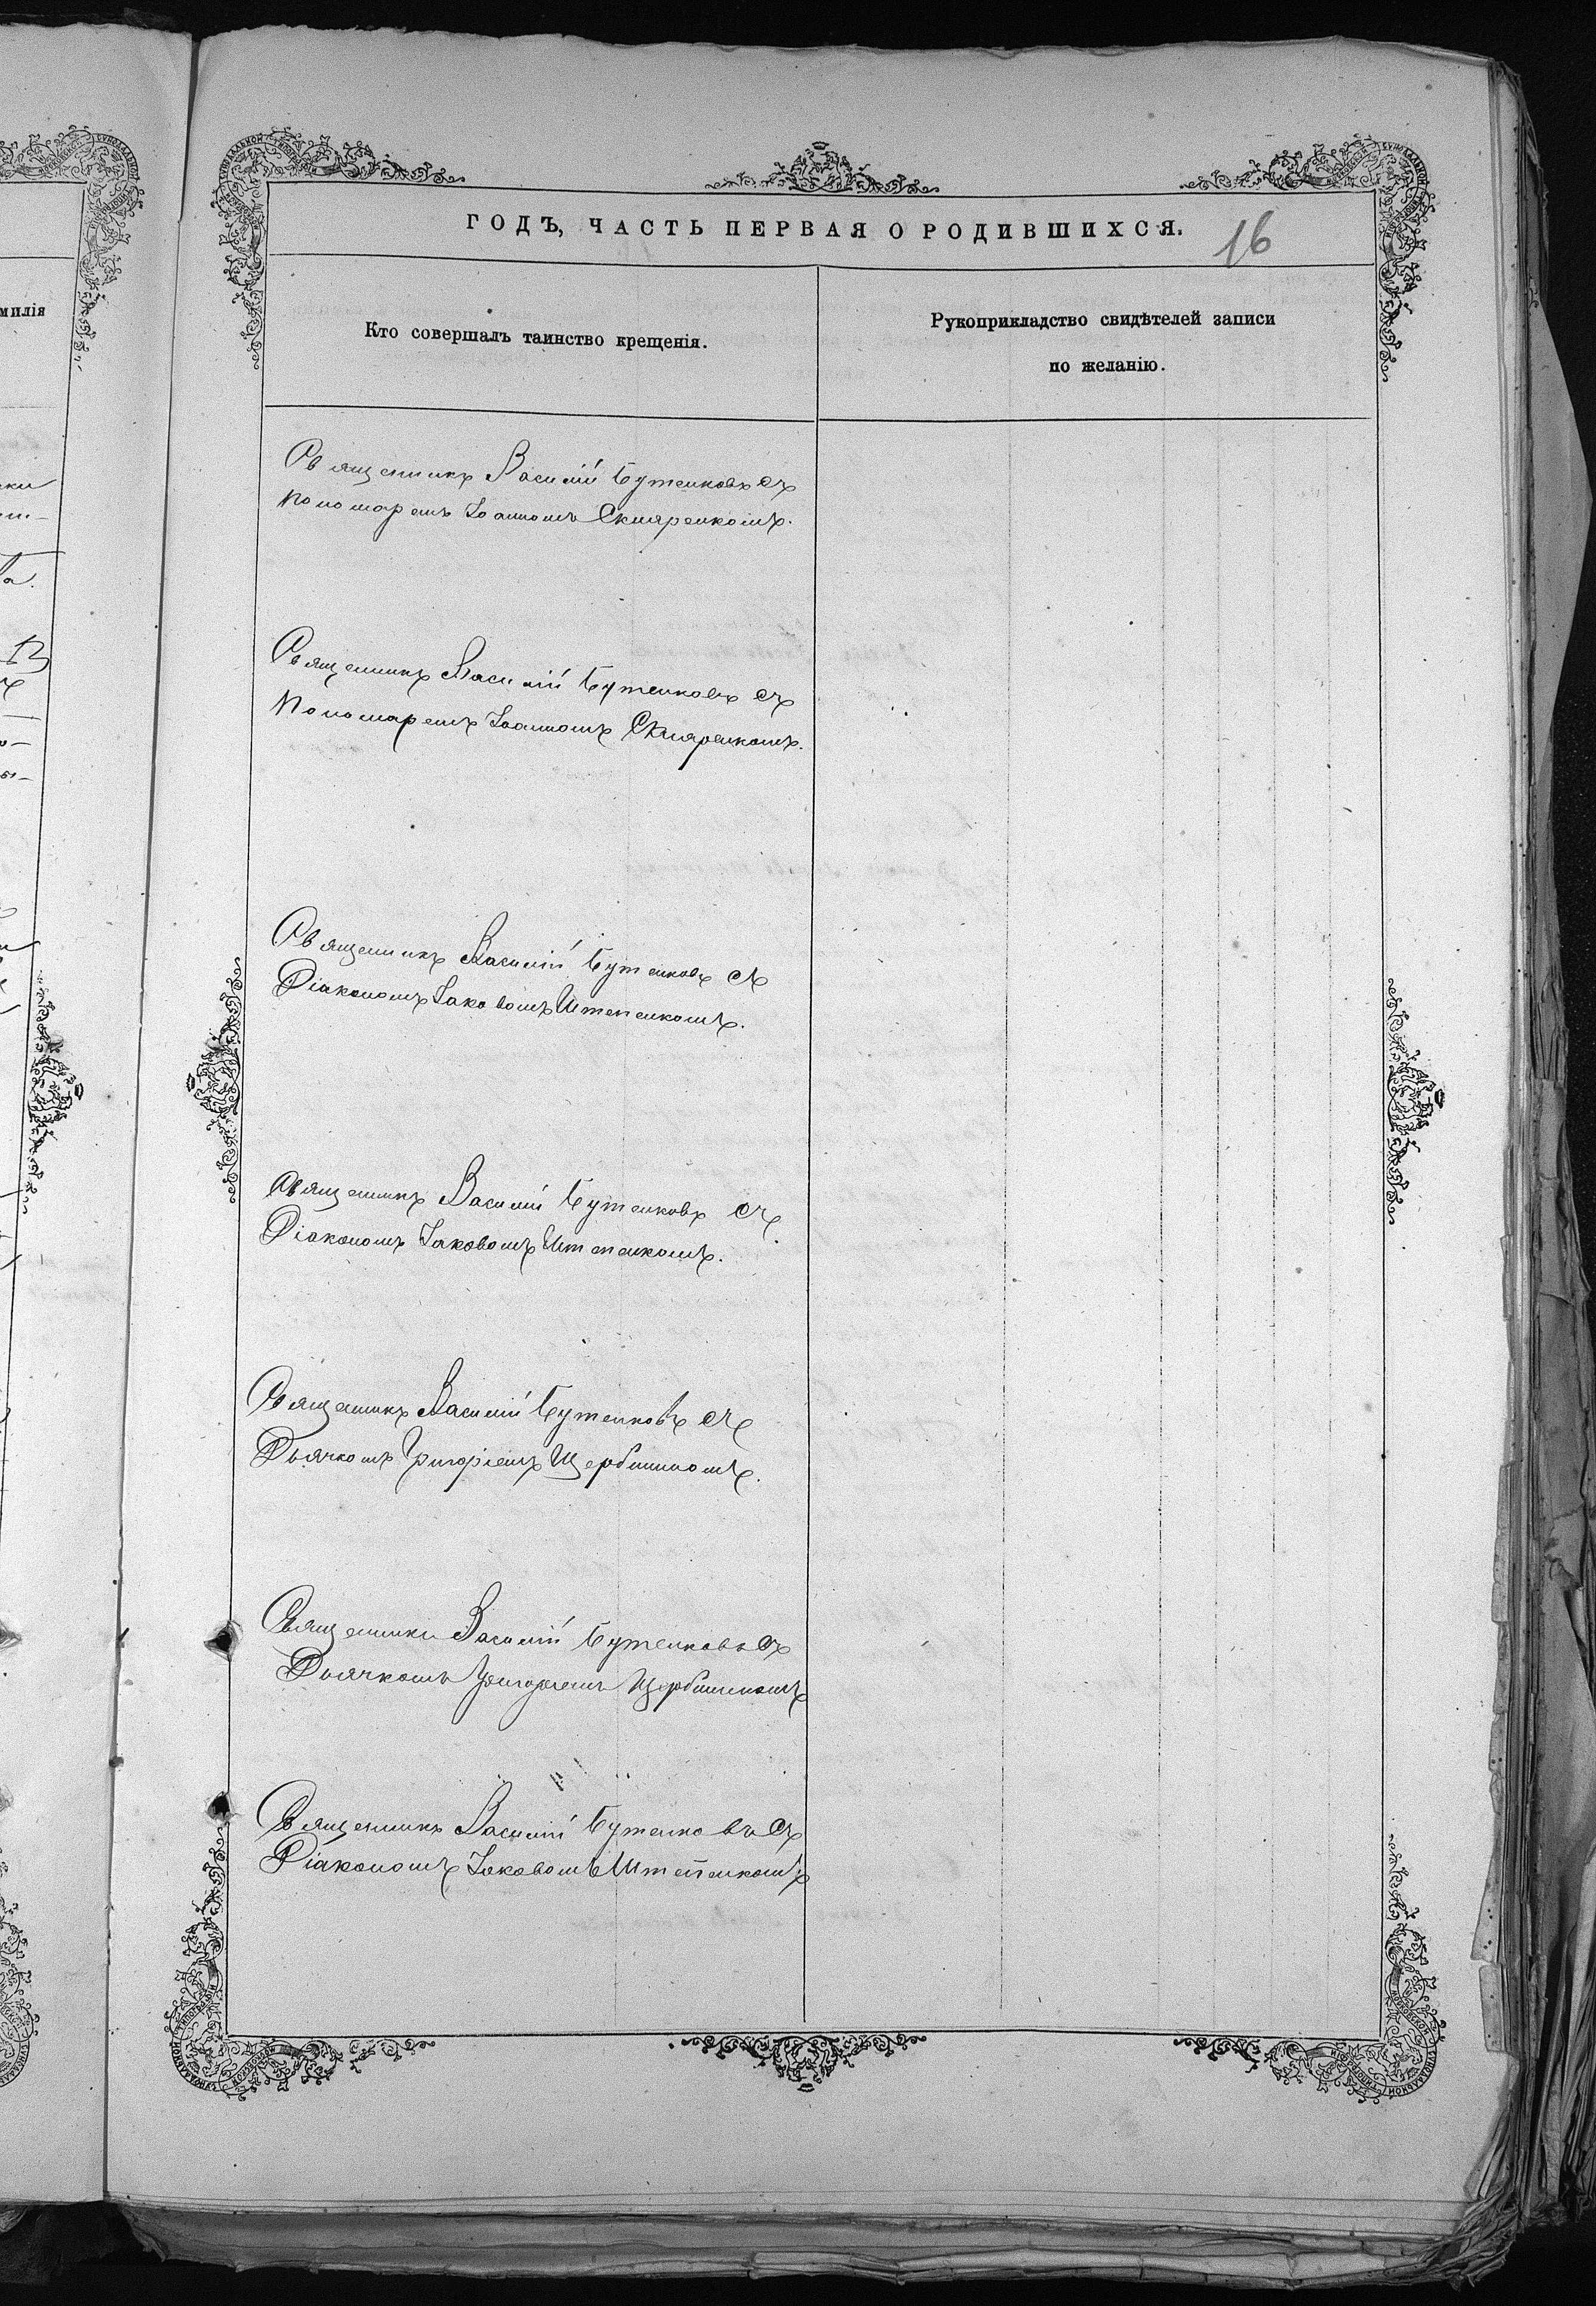 ГОДЪ, ЧАСТЬ ПЕРВАЯ О РОДИВШИХСЯ. 16
милія
Кто совершалъ таинство крещенія.
Рукоприкладство свидѣтелей записи
по желанію.
Священникъ Василій Бутенковъ съ
Пономаремъ Іоанномъ Скляренкомъ.
Священникъ Василій Бутенковъ съ
Пономаремъ Іоанномъ Скляренкомъ.
Священникъ Василій Бутенковъ съ
Діакономъ Іаковомъ Штепенкомъ.
Священникъ Василій Бутенковъ съ
Діакономъ Іаковомъ Штепенкомъ.
Священникъ Василій Бутенковъ съ
Дьячкомъ Григоріемъ Щербининомъ.
Священникъ Василій Бутенковъ съ
Дьячкомъ Григоріемъ Щербининомъ
Священникъ Василій Бутенковъ съ
Діакономъ Іаковомъ Штепенкомъ